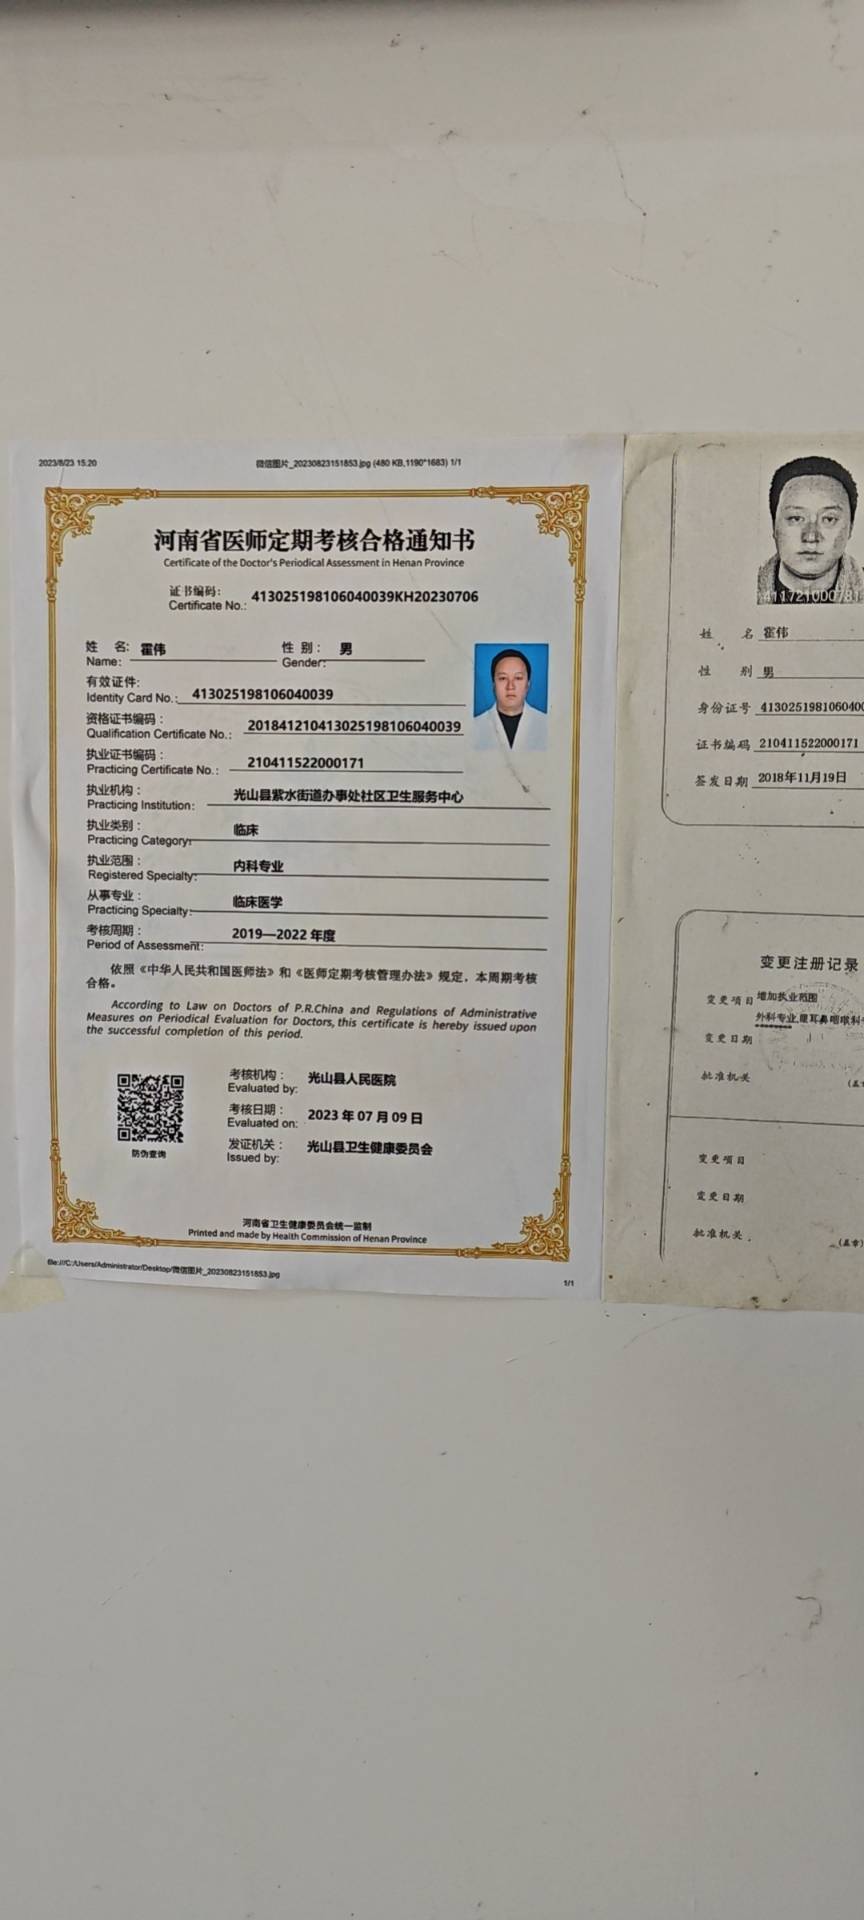 2023/8/23 15:20
微信图片_20230823151853.jpg (480 KB,1190*1683) 1/1
河南省医师定期考核合格通知书
Certificate of the Doctor's Periodical Assessment in Henan Province
证书编码:
Certificate No.: 413025198106040039KH20230706
姓 名: 霍伟 性 别: 男
Name: Gender:
有效证件:
Identity Card No.: 413025198106040039
资格证书编码:
Qualification Certificate No.: 201841210413025198106040039
执业证书编码:
Practicing Certificate No.: 210411522000171
执业机构: 光山县紫水街道办事处社区卫生服务中心
Practicing Institution:
执业类别: 临床
Practicing Category:
执业范围: 内科专业
Registered Specialty:
从事专业: 临床医学
Practicing Specialty:
考核周期: 2019—2022 年度
Period of Assessment:
依照《中华人民共和国医师法》和《医师定期考核管理办法》规定,本周期考核
合格。
According to Law on Doctors of P.R.China and Regulations of Administrative
Measures on Periodical Evaluation for Doctors, this certificate is hereby issued upon
the successful completion of this period.
考核机构: 光山县人民医院
Evaluated by:
考核日期: 2023 年 07 月 09 日
Evaluated on:
发证机关: 光山县卫生健康委员会
Issued by:
防伪查询
河南省卫生健康委员会统一监制
Printed and made by Health Commission of Henan Province
file:///C:/Users/Administrator/Desktop/微信图片_20230823151853.jpg
1/1
411721000781
姓 名 霍伟
性 别 男
身份证号 4130251981060400
证书编码 210411522000171
签发日期 2018年11月19日
变更注册记录
变更项目 增加执业范围
外科专业,眼耳鼻咽喉科
变更日期
批准机关
变更项目
变更日期
批准机关
(盖章)